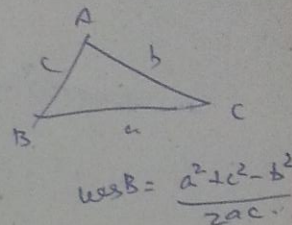 A
c b
B a C
cos B = a² + c² - b² / 2ac.